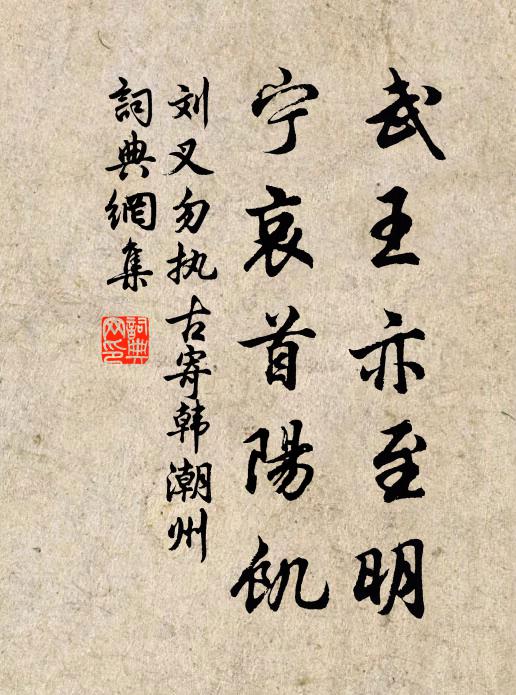 武王亦至明
宁哀首陽飢
刘叉勿执古寄韩潮州
詞典網集
詞典
网印